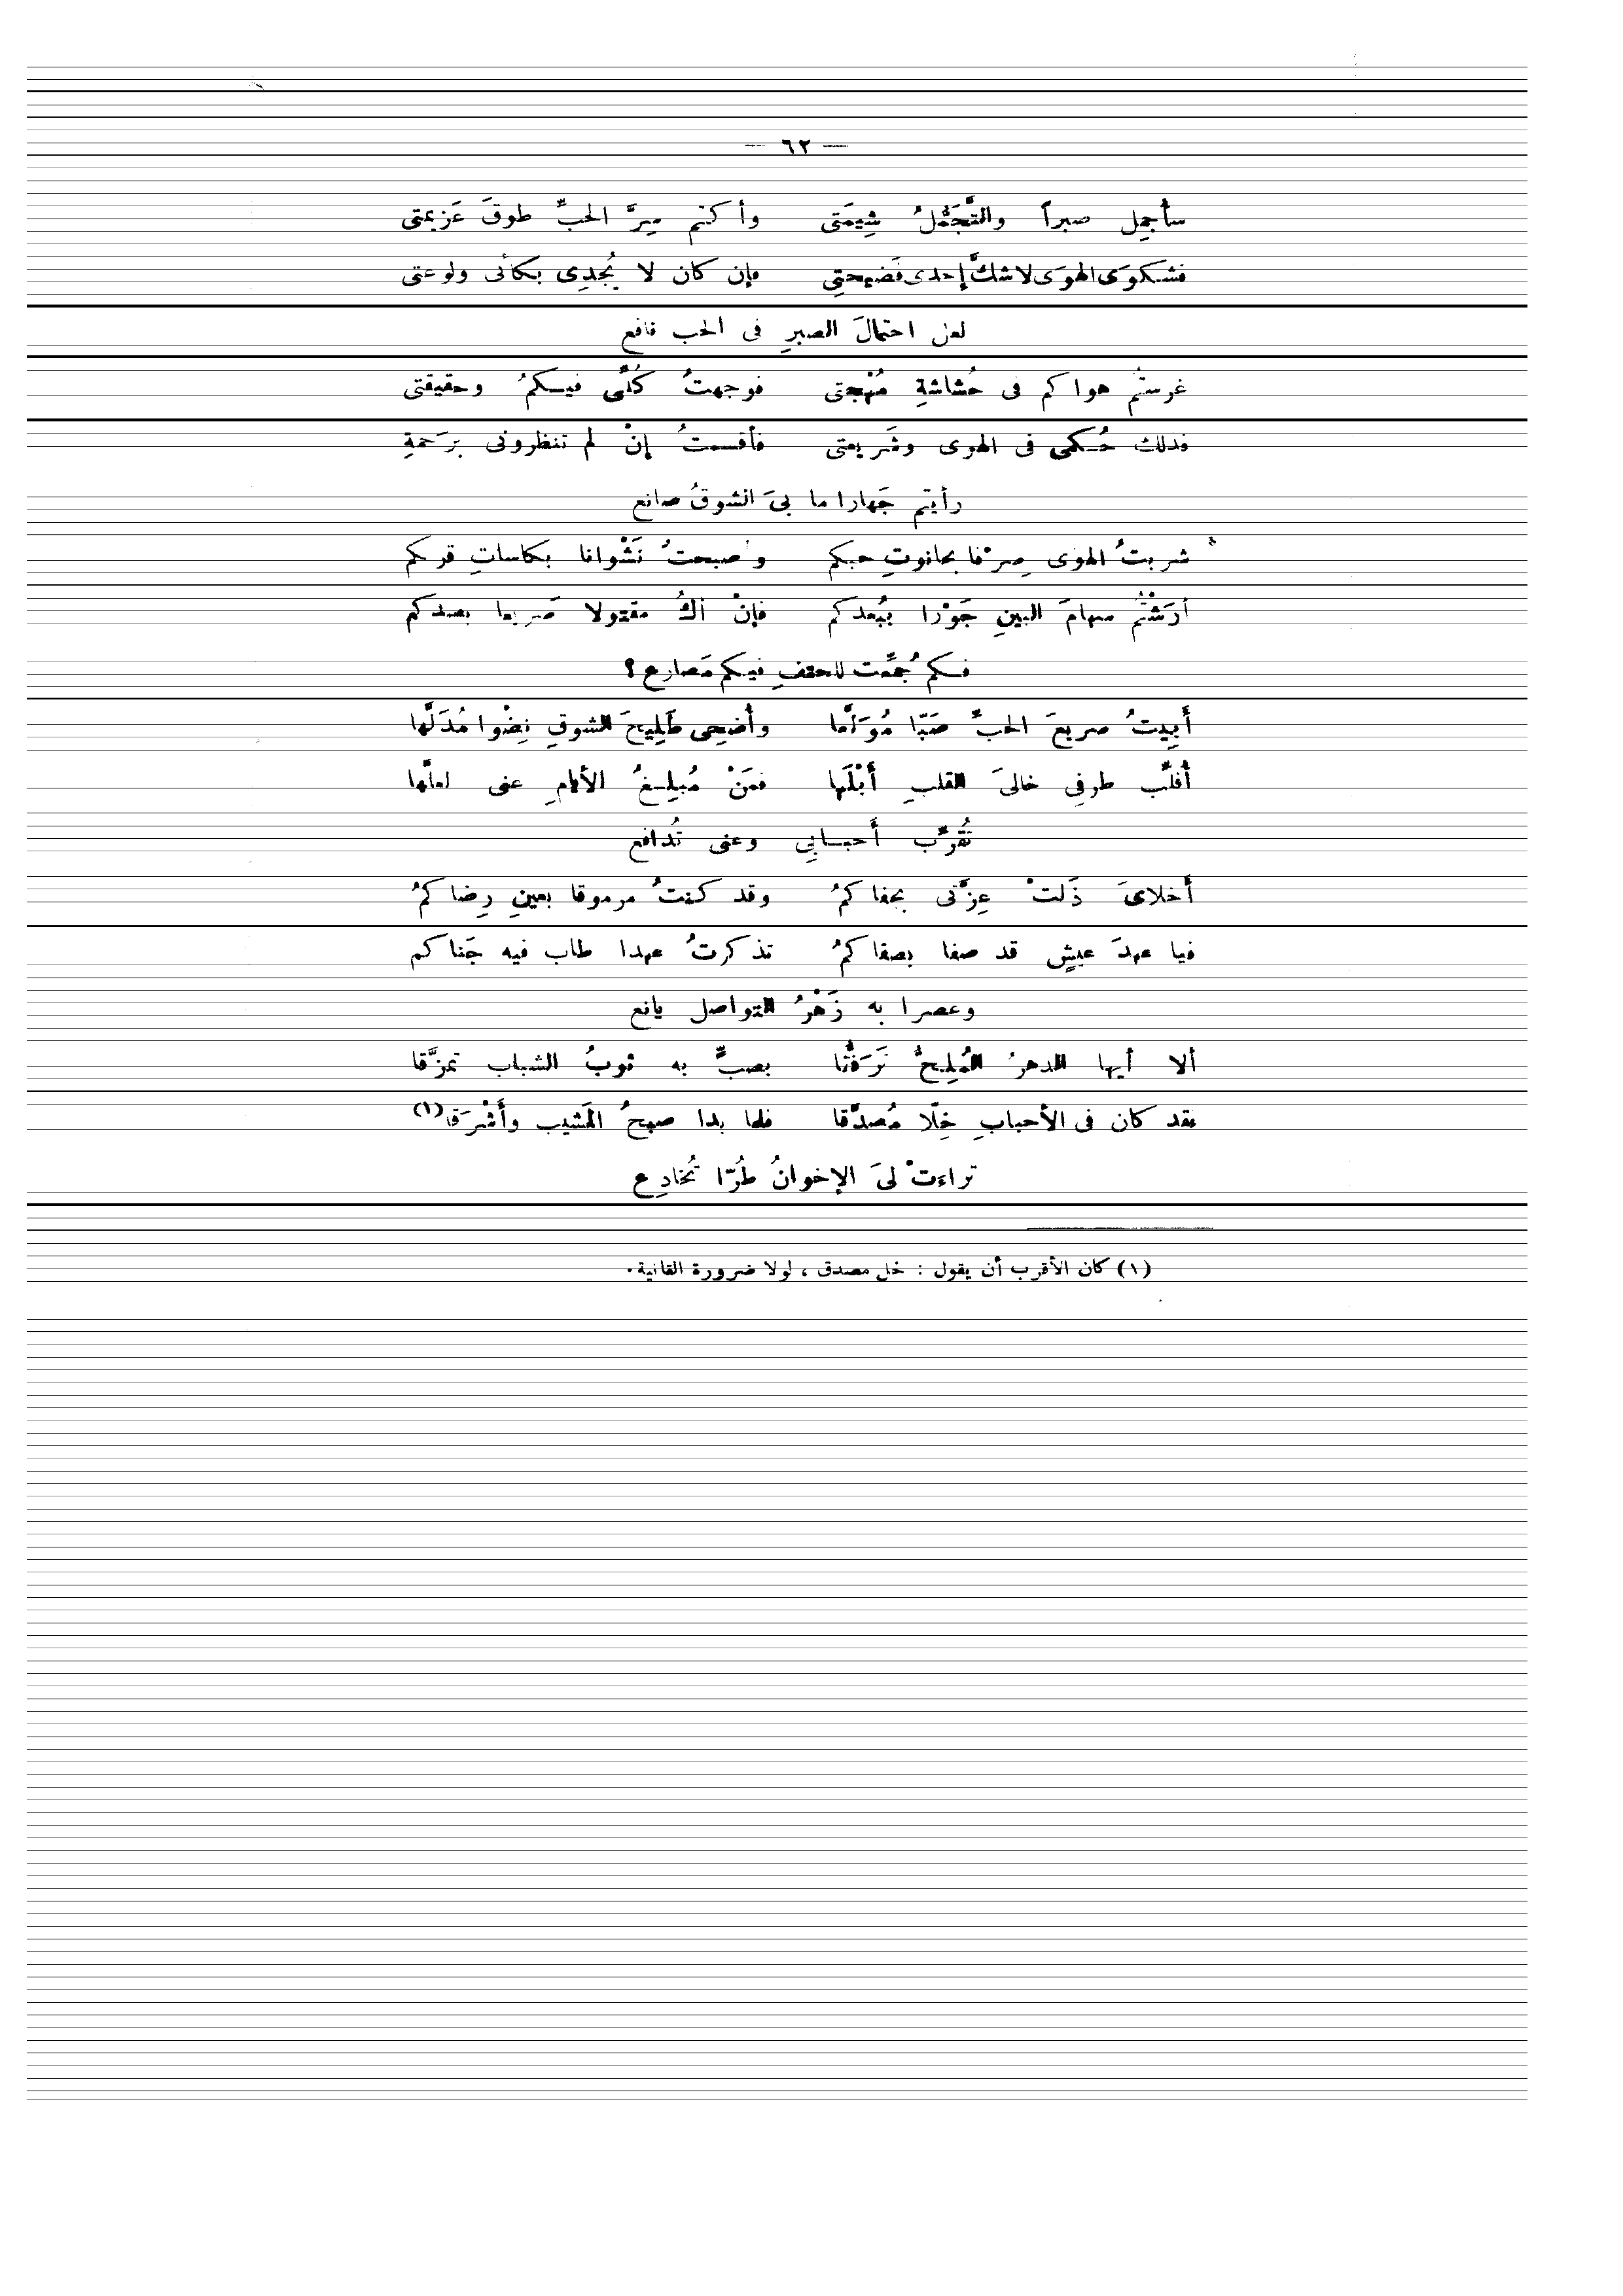 — ٦٢ —
سأجمِل صبراً والتَّجَمُّلُ شِيمَتى وأكتم سِرَّ الحبِّ طوقَ عَزيمتى
فشكوَى الهوَى لا شكَّ إحدى فَضيحتِى فإن كان لا يُجدِى بكائى ولوعتى
لعل احتمالَ الصبرِ فى الحب نافع
غرستُم هواكم فى حُشاشةِ مُهْجتى فوجهتُ كُلِّى فيكمُ وحقيقتى
فذلك حُكمى فى الهوى وشَريعتى فأقسمتُ إنْ لم تنظرونى برَحمةِ
رأيتم جَهارا ما بىَ الشوقُ صانع
شربتُ الهوَى صِرْفا بحانوتِ حبكم وأصبحتُ نَشْوانا بكاساتِ قربكم
أرَشْتُمْ سهامَ البينِ جَوْرا ببُعدكم فإنْ أكُ مقتولا صَريعا بصدكم
فكم جُمِّعت للحتفِ فيكم مَصارع؟
أَبِيتُ صريعَ الحبِّ صَبّا مُوَلَّها وأُضحِى طَلِيحَ الشوقِ نِضْوا مُدَلَّها
أُقلِّب طرفِى خالىَ القلبِ أَبْلَها فمَنْ مُبلِغُ الأيامِ عنى لعلَّها
تُقرِّب أَحبابِى وعنى تُدافع
أَخلاىَ ذَلتْ عِزَّتى بجفاكمُ وقد كنتُ مرموقا بعينِ رِضاكمُ
فيا عهدَ عيشٍ قد صفا بصفاكمُ تذكرتُ عهدا طاب فيه جَناكم
وعصرا به زَهْرُ التواصل يانع
ألا أيها الدهرُ المُلِحُّ تَرَفُّقا بصبٍّ به ثوبُ الشباب تمزَّقا
فقد كان فى الأحبابِ خِلّا مُصدَّقا فلما بدا صبحُ المَشيب وأَشْرَقا(١)
تراءتْ لىَ الإخوانُ طُرّا تُخادِع
(١) كان الأقرب أن يقول : خل مصدق ، لولا ضرورة القافية.